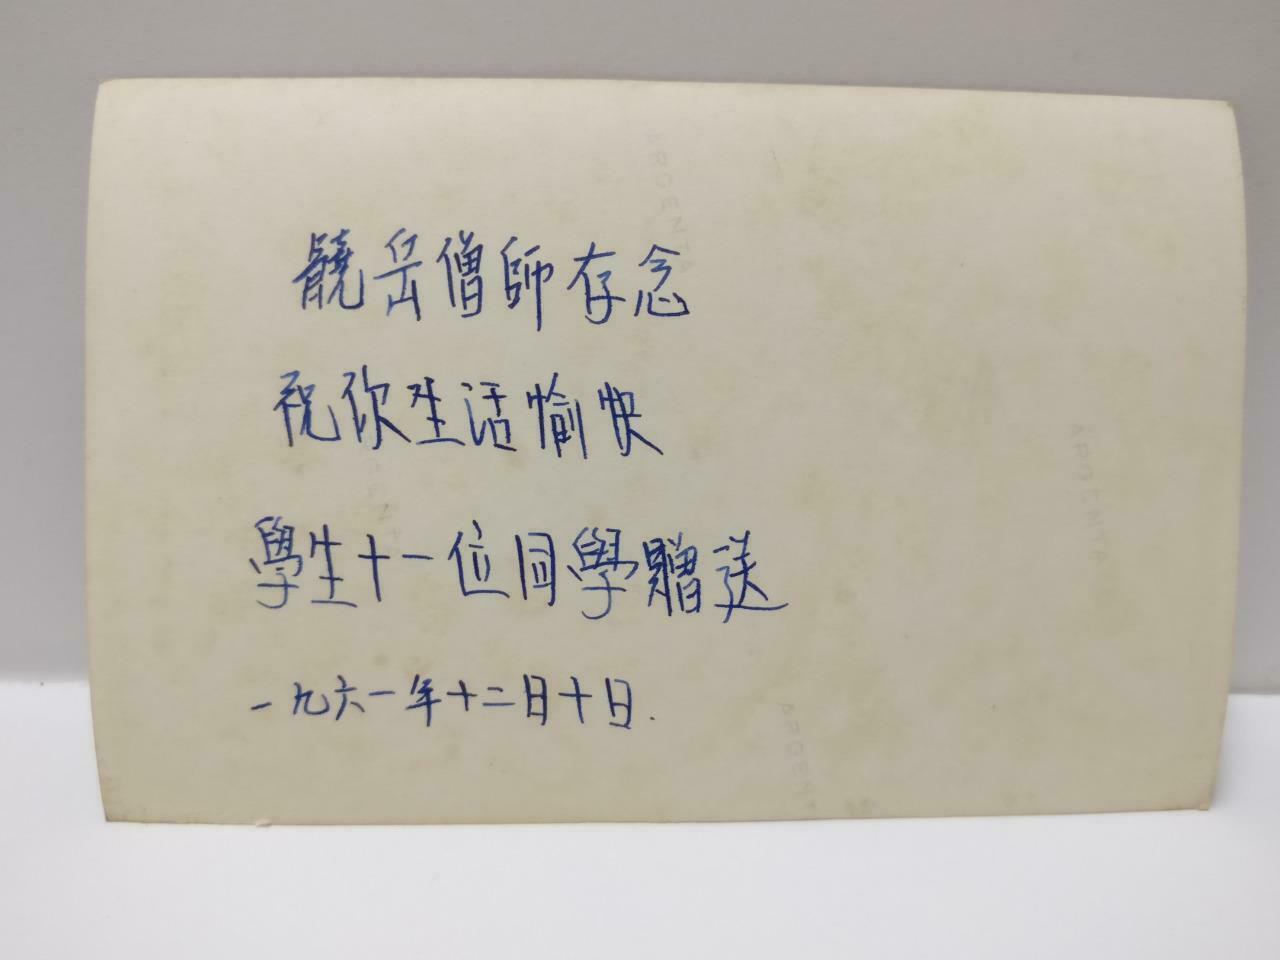 饒岳僧師存念
祝你生活愉快
學生十一位同學贈送
一九六一年十二日十日.
ARGENTA
ARGENTA
ARGENT